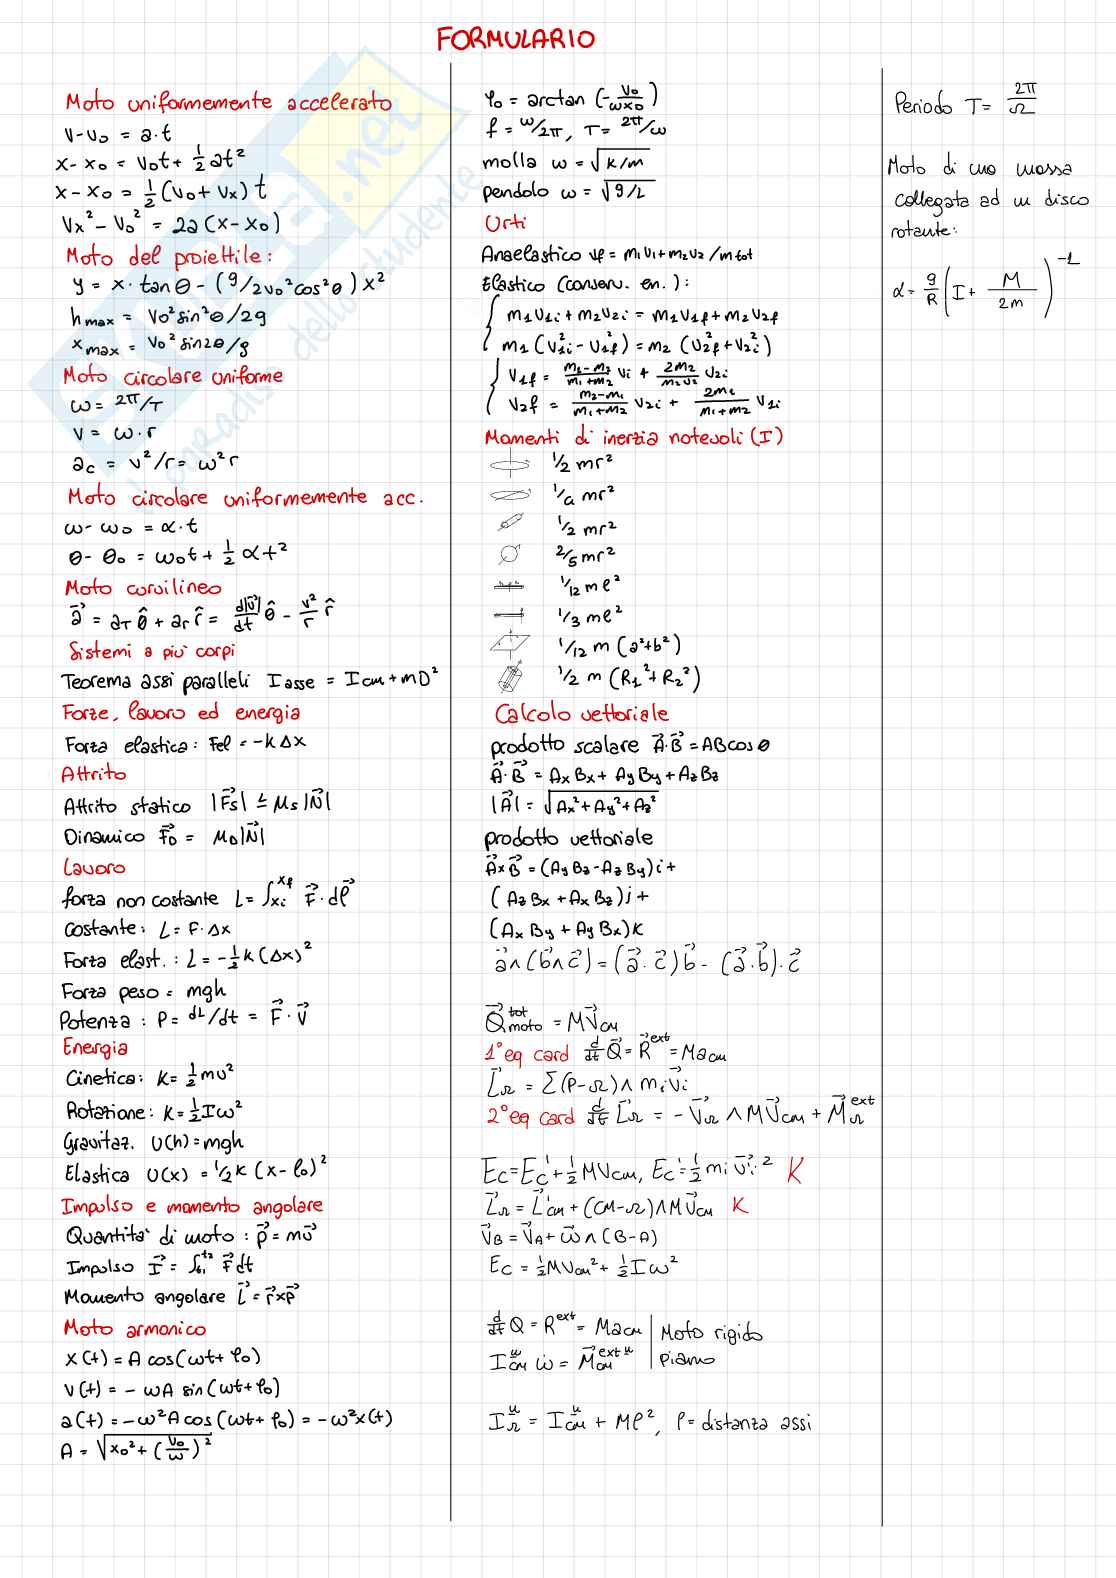 FORMULARIO
Moto uniformemente accelerato
v-v₀ = a·t
x-x₀ = v₀t + 1/2 at²
x-x₀ = 1/2 (v₀+vₓ) t
vₓ² - v₀² = 2a (x-x₀)
Moto del proiettile:
y = x·tanθ - (g/2v₀²cos²θ) x²
h max = v₀²sin²θ/2g
x max = v₀² sin2θ/g
Moto circolare uniforme
ω = 2π/T
v = ω·r
a_c = v²/r = ω²r
Moto circolare uniformemente acc.
ω-ω₀ = α·t
θ-θ₀ = ω₀t + 1/2 αt²
Moto curvilineo
a⃗ = a_T θ̂ + a_r r̂ = d|v⃗|/dt θ̂ - v²/r r̂
Sistemi a più corpi
Teorema assi paralleli I asse = I cm + mD²
Forze, lavoro ed energia
Forza elastica: Fel = -kΔx
Attrito
Attrito statico |F⃗s| ≤ μs|N⃗|
Dinamico F⃗_D = μ_D|N⃗|
Lavoro
forza non costante L = ∫_xi^xf F⃗·dℓ⃗
costante: L = F·Δx
Forza elast.: L = -1/2 k (Δx)²
Forza peso = mgh
Potenza: P = dL/dt = F⃗·v⃗
Energia
Cinetica: K = 1/2 mv²
Rotazione: K = 1/2 Iω²
Gravitaz. U(h) = mgh
Elastica U(x) = 1/2 k (x-ℓ₀)²
Impulso e momento angolare
Quantità di moto: p⃗ = mv⃗
Impulso I⃗ = ∫_t1^t2 F⃗dt
Momento angolare L⃗ = r⃗×p⃗
Moto armonico
x(t) = A cos(ωt+φ₀)
v(t) = -ωA sin(ωt+φ₀)
a(t) = -ω²A cos(ωt+φ₀) = -ω²x(t)
A = √(x₀²+(v₀/ω)²)
φ₀ = arctan (-v₀/ωx₀)
f = ω/2π, T = 2π/ω
molla ω = √(k/m)
pendolo ω = √(g/L)
Urti
Anaelastico vf = m₁v₁+m₂v₂/m tot
Elastico (conserv. en.):
m₁v₁i + m₂v₂i = m₁v₁f + m₂v₂f
m₁ (v₁i² - v₁f²) = m₂ (v₂f² + v₂i²)
v₁f = (m₁-m₂)/(m₁+m₂) vi + 2m₂/(m₂v₂) v₂i
v₂f = (m₂-m₁)/(m₁+m₂) v₂i + 2m₁/(m₁+m₂) v₁i
Momenti di inerzia notevoli (I)
1/2 mr²
1/a mr²
1/2 mr²
2/5 mr²
1/12 mℓ²
1/3 mℓ²
1/12 m (a²+b²)
1/2 m (R₁²+R₂²)
Calcolo vettoriale
prodotto scalare A⃗·B⃗ = ABcosθ
A⃗·B⃗ = AxBx + AyBy + AzBz
|A⃗| = √(Ax²+Ay²+Az²)
prodotto vettoriale
A⃗×B⃗ = (AyBz-AzBy)i+
(AzBx+AxBz)j+
(AxBy+AyBx)k
a⃗∧(b⃗∧c⃗) = (a⃗·c⃗)b⃗ - (a⃗·b⃗)·c⃗
Q⃗ tot moto = Mv⃗cm
1°eq card d/dt Q⃗ = R⃗ext = Macm
L⃗Ω = Σ(P-Ω)∧miv⃗i
2°eq card d/dt L⃗Ω = -v⃗Ω ∧ Mv⃗cm + M⃗Ω ext
Ec = Ec' + 1/2 Mvcm, Ec' = 1/2 mi v⃗i'² K
L⃗Ω = L⃗'cm + (CM-Ω)∧Mv⃗cm K
v⃗B = v⃗A + ω⃗∧(B-A)
Ec = 1/2 Mvcm² + 1/2 Iω²
d/dt Q = Rext = Macm | Moto rigido
Icm u ω̇ = M⃗cm ext u | piano
IΩ u = Icm u + Mρ², ρ = distanza assi
Periodo T = 2π/Ω
Moto di una massa
collegata ad un disco
rotante:
α = g/R (I + M/2m)⁻¹